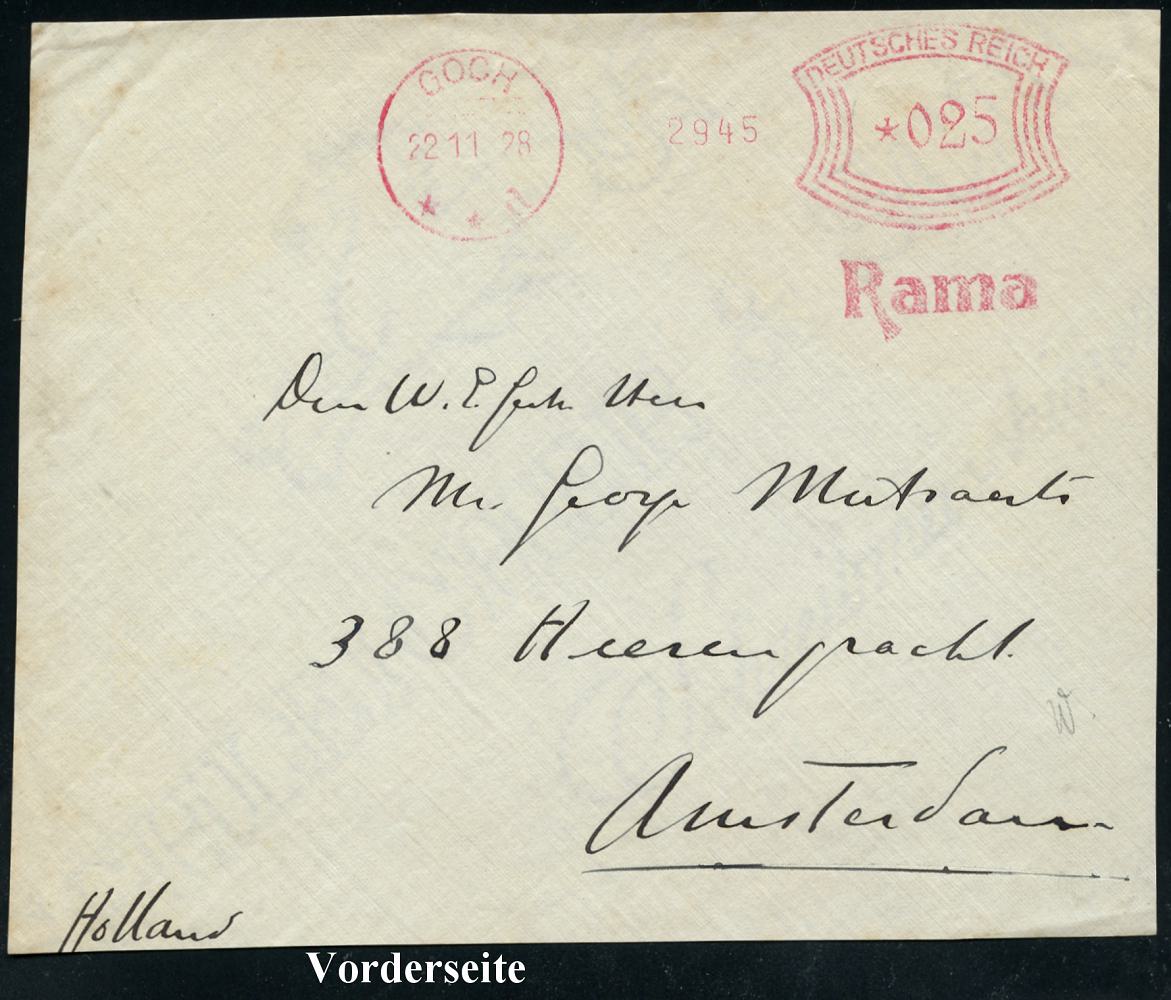 DEUTSCHES REICH
GOCH
22 11 28
2945
*025
Rama
Den W. E. Heer
Mr. George Mutsaerts
388 Heerengracht.
W.
Amsterdam
Holland
Vorderseite